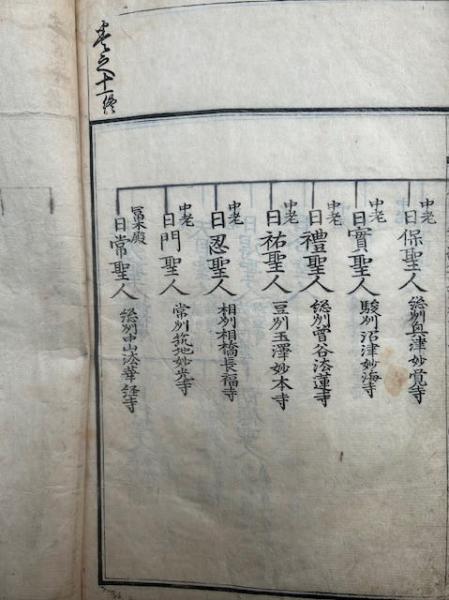 中老 日保聖人 緫州奥津妙覚寺
中老 日實聖人 駿州沼津妙海寺
中老 日禮聖人 緫州曽谷法蓮寺
中老 日祐聖人 豆州玉澤妙本寺
中老 日忍聖人 相州相橋長福寺
中老 日門聖人 常州筑地妙光寺
冨木殿 日常聖人 緫州中山法華経寺
巻之十一終